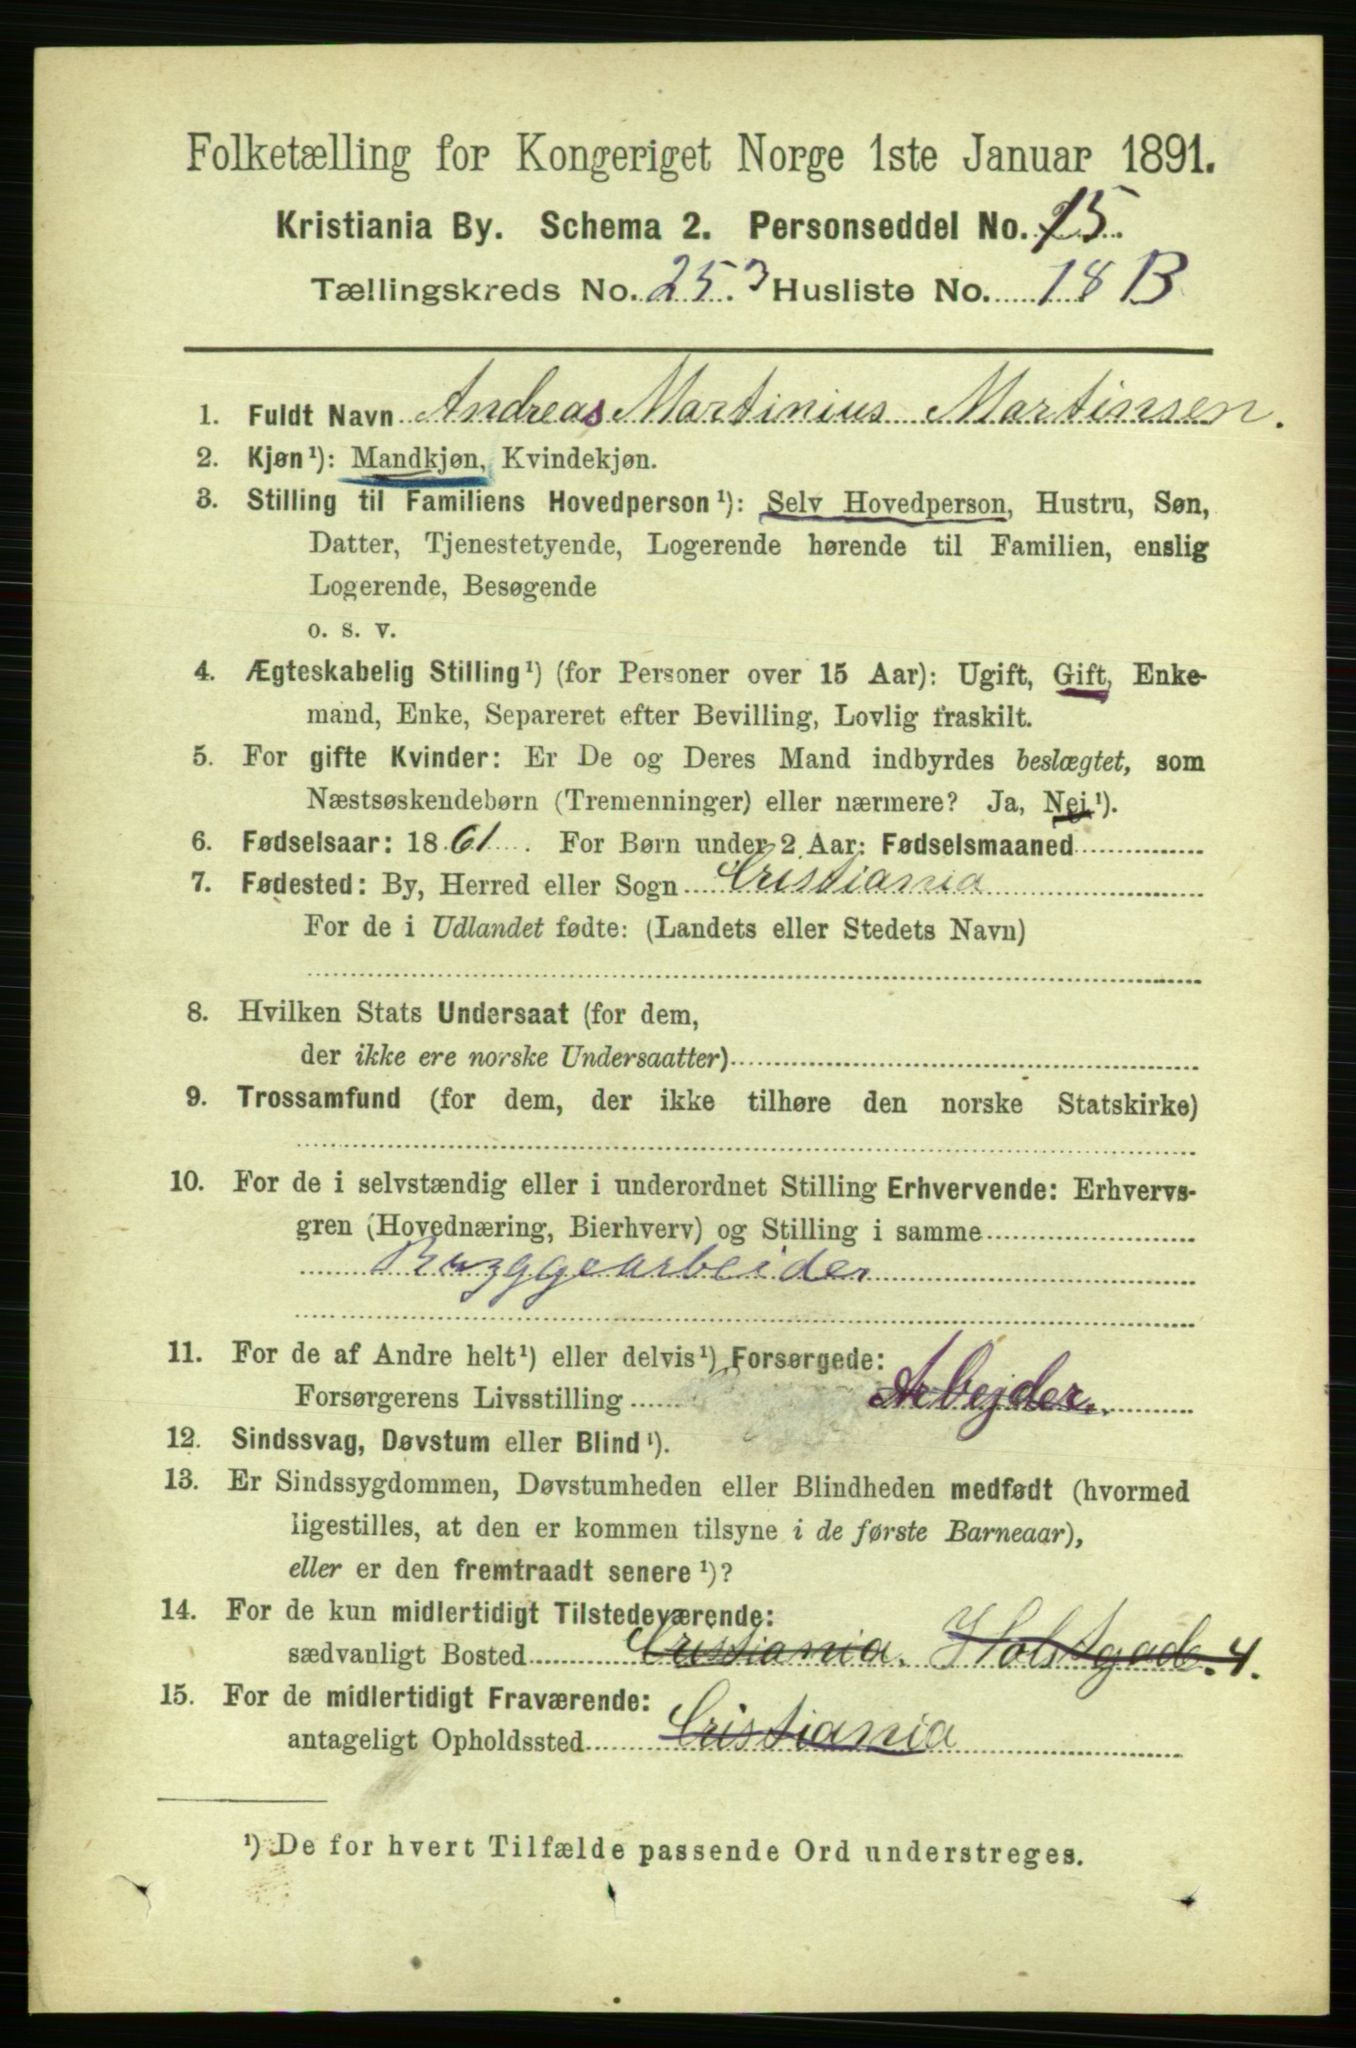 Folketælling for Kongeriget Norge 1ste Januar 1891.
Kristiania By. Schema 2. Personseddel No. 15
Tællingskreds No. 253 Husliste No. 18 B
1. Fuldt Navn Andreas Martinius Martinsen.
2. Kjøn¹): Mandkjøn, Kvindekjøn.
3. Stilling til Familiens Hovedperson¹): Selv Hovedperson, Hustru, Søn,
Datter, Tjenestetyende, Logerende hørende til Familien, enslig
Logerende, Besøgende
o. s. v.
4. Ægteskabelig Stilling¹) (for Personer over 15 Aar): Ugift, Gift, Enke-
mand, Enke, Separeret efter Bevilling, Lovlig fraskilt.
5. For gifte Kvinder: Er De og Deres Mand indbyrdes beslægtet, som
Næstsøskendebørn (Tremenninger) eller nærmere? Ja, Nej¹).
6. Fødselsaar: 1861. For Børn under 2 Aar: Fødselsmaaned
7. Fødested: By, Herred eller Sogn Cristiania
For de i Udlandet fødte: (Landets eller Stedets Navn)
8. Hvilken Stats Undersaat (for dem,
der ikke ere norske Undersaatter)
9. Trossamfund (for dem, der ikke tilhøre den norske Statskirke)
10. For de i selvstændig eller i underordnet Stilling Erhvervende: Erhvervs-
gren (Hovednæring, Bierhverv) og Stilling i samme
Bryggearbeider
11. For de af Andre helt¹) eller delvis¹) Forsørgede:
Forsørgerens Livsstilling Arbejder.
12. Sindssvag, Døvstum eller Blind¹).
13. Er Sindssygdommen, Døvstumheden eller Blindheden medfødt (hvormed
ligestilles, at den er kommen tilsyne i de første Barneaar),
eller er den fremtraadt senere¹)?
14. For de kun midlertidigt Tilstedeværende:
sædvanligt Bosted Cristiania. Holstgade. 4.
15. For de midlertidigt Fraværende:
antageligt Opholdssted Cristiania
¹) De for hvert Tilfælde passende Ord understreges.